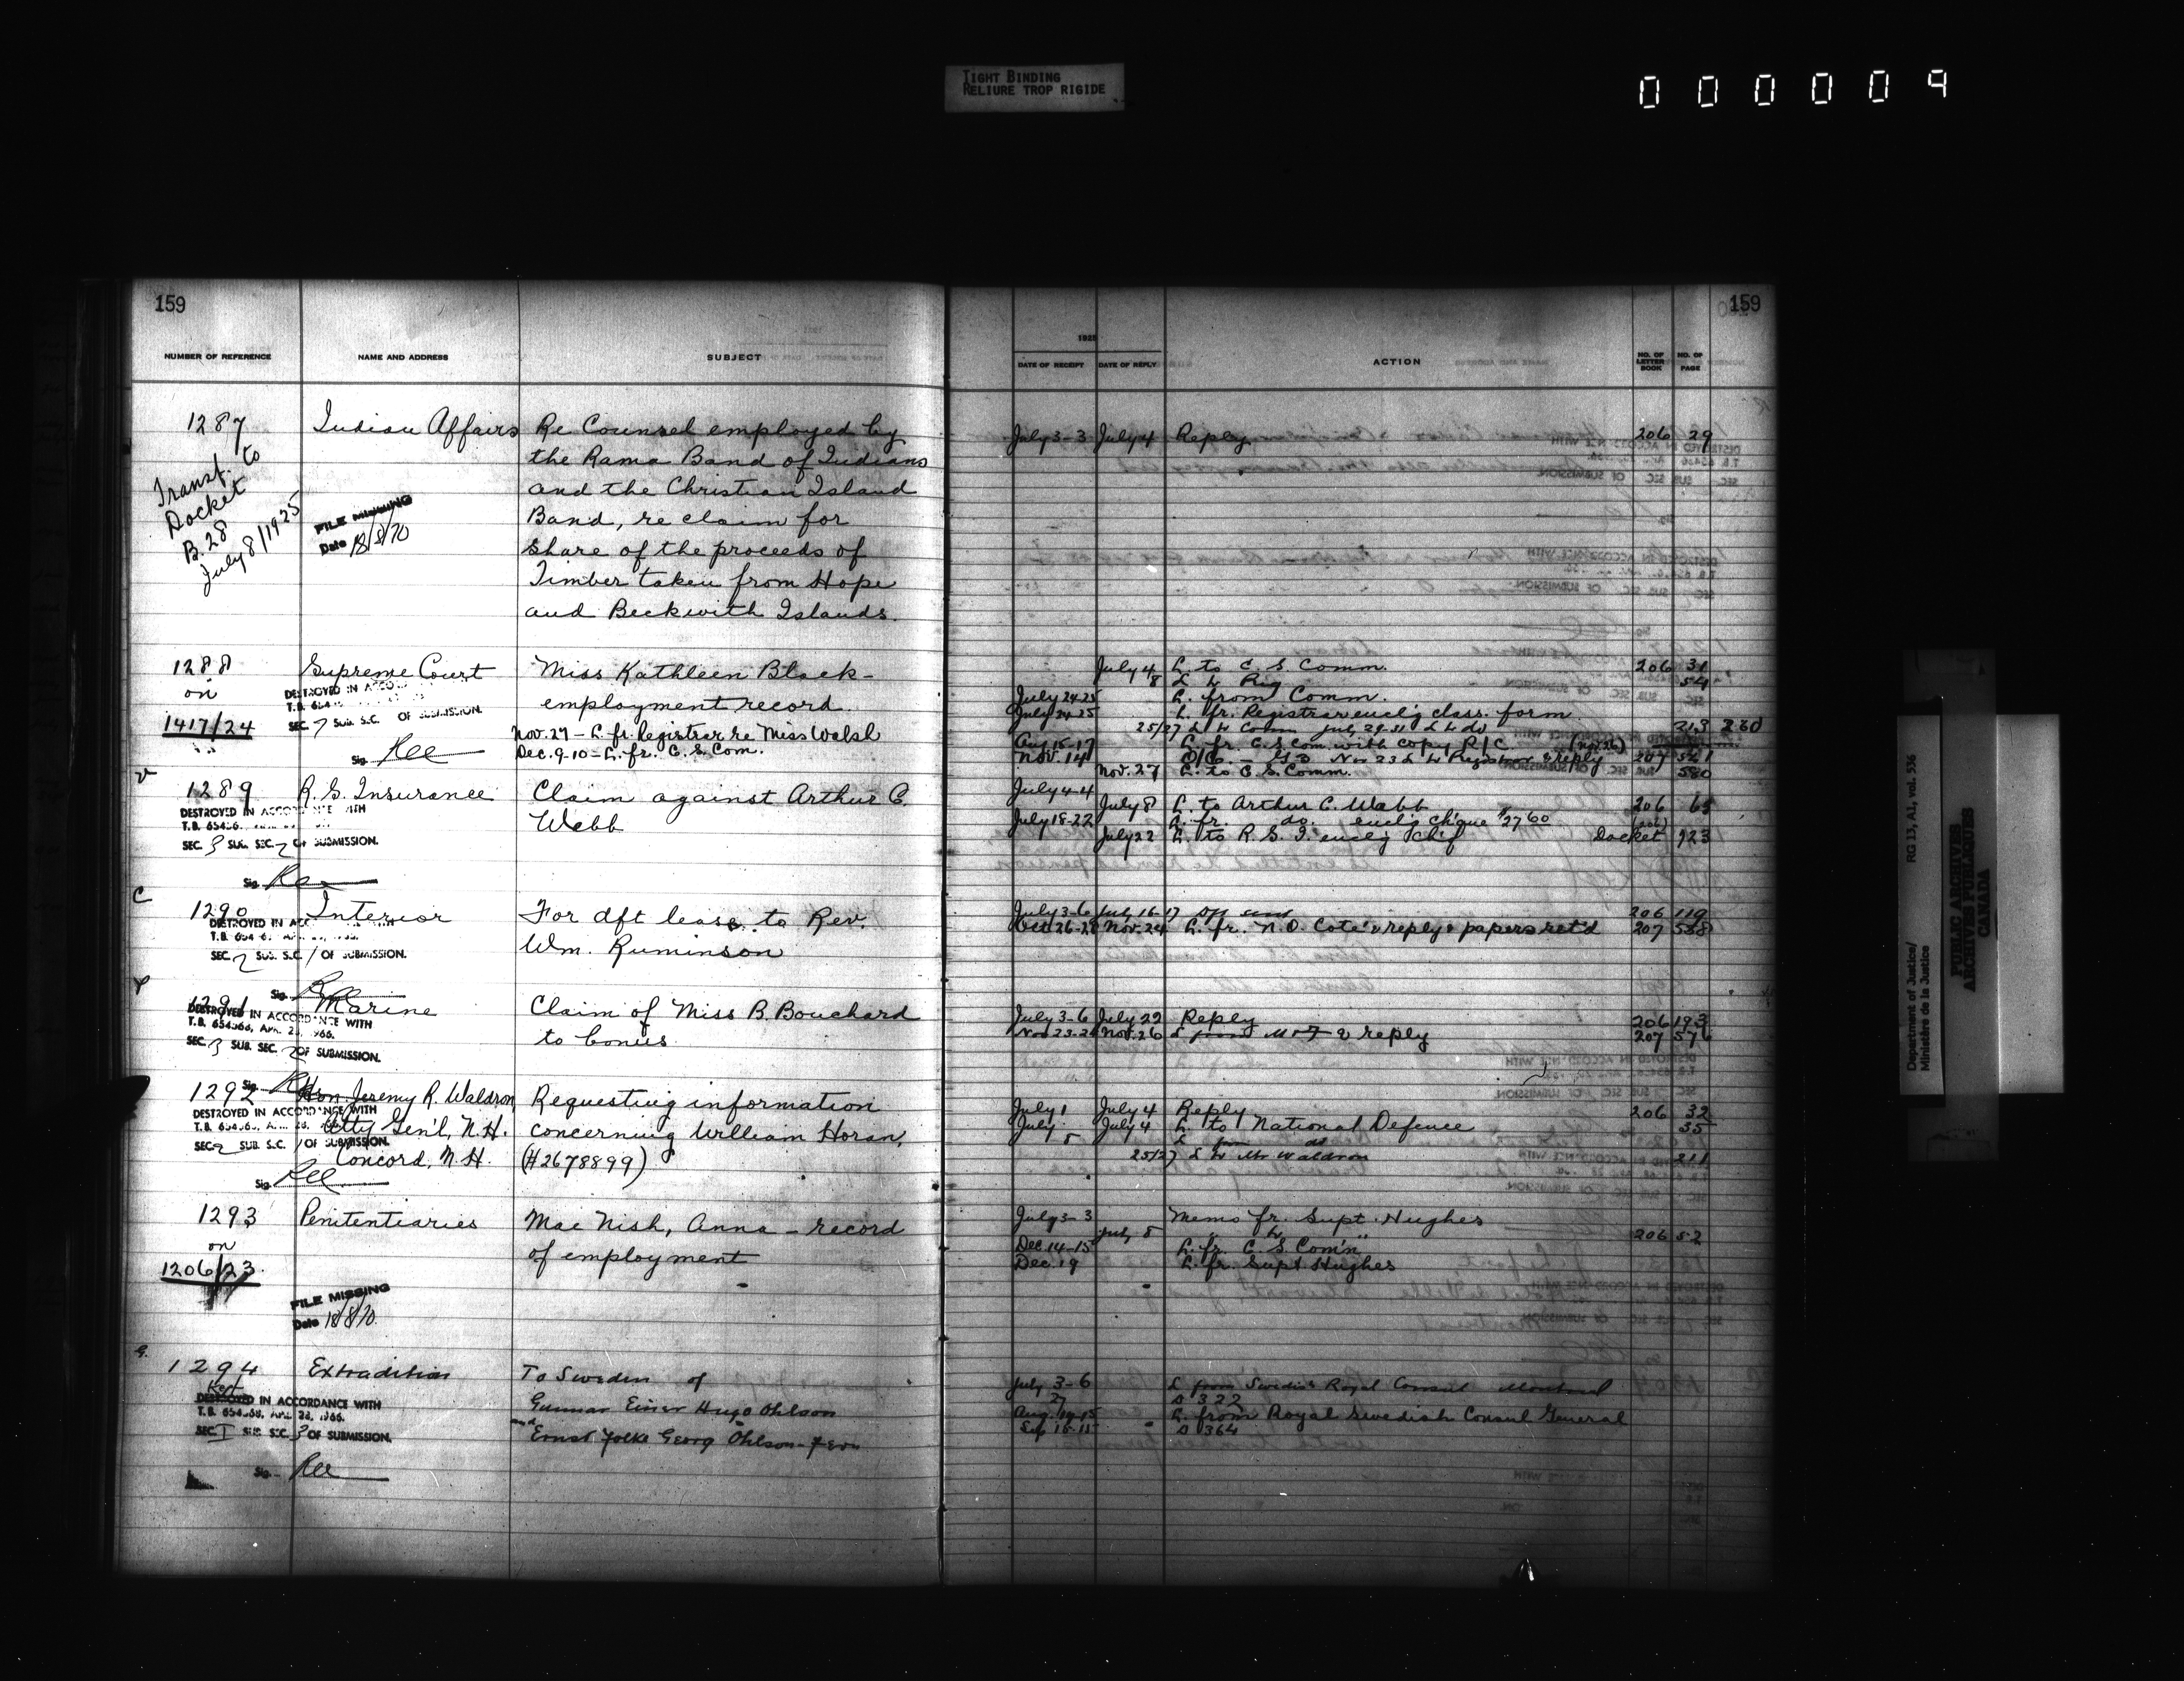 TIGHT BINDING
RELIURE TROP RIGIDE
000009
159
NUMBER OF REFERENCE NAME AND ADDRESS SUBJECT
1287 Indian Affairs Re Counsel employed by
the Rama Band of Indians
and the Christian Island
Band, re claim for
Share of the proceeds of
Timber taken from Hope
and Beckwith Islands.
Transf. to
Docket
B. 28
July 8/1925
FILE MISSING
Date 18/8/70
1288 Supreme Court Miss Kathleen Black -
on employment record.
1417/24 Nov. 27 - L. fr. Registrar re Miss Walsh
Dec. 9-10 - L. fr. C. S. Com.
DESTROYED IN
T.B.
SEC. 7 SUB. S.C. OF SUBMISSION.
Sig.
1289 R. G. Insurance Claim against Arthur C.
Webb
DESTROYED IN ACCORDANCE WITH
T.B. 65456
SEC. 3 SUB. SEC. 2 OF SUBMISSION.
Sig.
C
1290 Interior For dft lease to Rev.
Wm. Ruminson
DESTROYED IN
T.B.
SEC. 2 SUB. S.C. 1 OF SUBMISSION.
Sig.
1291 Marine Claim of Miss B. Bouchard
to bonus.
DESTROYED IN ACCORDANCE WITH
T.B. 654366, APR. 28, 1966.
SEC. 3 SUB. SEC. 2 OF SUBMISSION.
Sig.
1292 Hon. Jeremy R. Waldron Requesting information
Atty Gen'l, N.H. concerning William Horan,
Concord, N.H. (#2678899)
DESTROYED IN ACCORDANCE WITH
SEC. 2 SUB. S.C. 1 OF SUBMISSION.
Sig.
1293 Penitentiaries Mac Nish, Anna - record
on of employment
1206/23
FILE MISSING
Date 18/8/70
G.
1294 Extradition To Sweden of
Gunnar Einar Hugo Ohlson
and Ernst Folke Georg Ohlson-
Kept
DESTROYED IN ACCORDANCE WITH
T.B. 654368, APR. 28, 1966.
SEC. I SUB. SEC. 3 OF SUBMISSION.
Sig.
159
1925
DATE OF RECEIPT DATE OF REPLY ACTION NO. OF LETTER BOOK NO. OF PAGE
July 3-3 July 4 Reply 206 29
July 4 L. to C. S. Comm. 206 31
8 L to Reg 54
July 24-25 L. from Comm.
July 24-25 L. fr. Registrar encl'g class. form
25/27 L to Comm July 29-31 L to do 213 260
Aug. 15-17 L. fr. C. S. Com. with copy P/C
Nov. 14 207 521
Nov. 27 L. to C. S. Comm. 580
July 4-4
July 8 L. to Arthur C. Webb 206 65
July 18-22 L. fr. do. encl'g cheque $27.60
July 22 L. to R. G. I. encl'g Docket 123
July 3-6 July 16-17 Dft sent 206 119
Oct 26-28 Nov. 24 L. fr. N. O. Coté & reply & papers ret'd 207 558
July 3-6 July 22 Reply 206 193
Nov 23-24 Nov. 26 L from M & F & reply 207 576
July 1 July 4 Reply 206 32
July July 4 L. to National Defence 35
8 L from do
25/27 L to Mr Waldron 211
July 3-3 Memo fr. Supt. Hughes
July 8 " to " 206 52
Dec. 14-15 L. fr. C. S. Com'n
Dec. 19 L. fr. Supt. Hughes
July 3-6 L from Swedish Royal Consul Montreal
27 D 322
Aug. 14-15 L. from Royal Swedish Consul General
Sep 15-15 D 364
Department of Justice/
Ministère de la Justice
RG 13, A1, vol. 536
PUBLIC ARCHIVES
ARCHIVES PUBLIQUES
CANADA